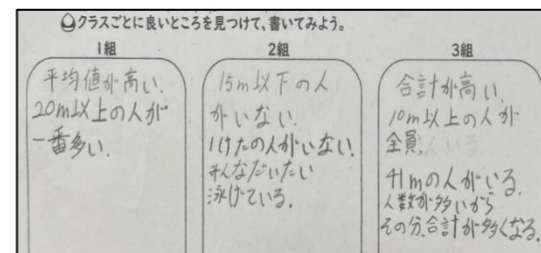 クラスごとに良いところを見つけて、書いてみよう。
1組
平均値が高い.
20m以上の人が
一番多い.
2組
15m以下の人
がいない.
1けたの人がいない.
みんなだいたい
泳げている.
3組
合計が高い.
10m以上の人が
全員.
41mの人がいる.
人数が多いから
その分.合計が多くなる.